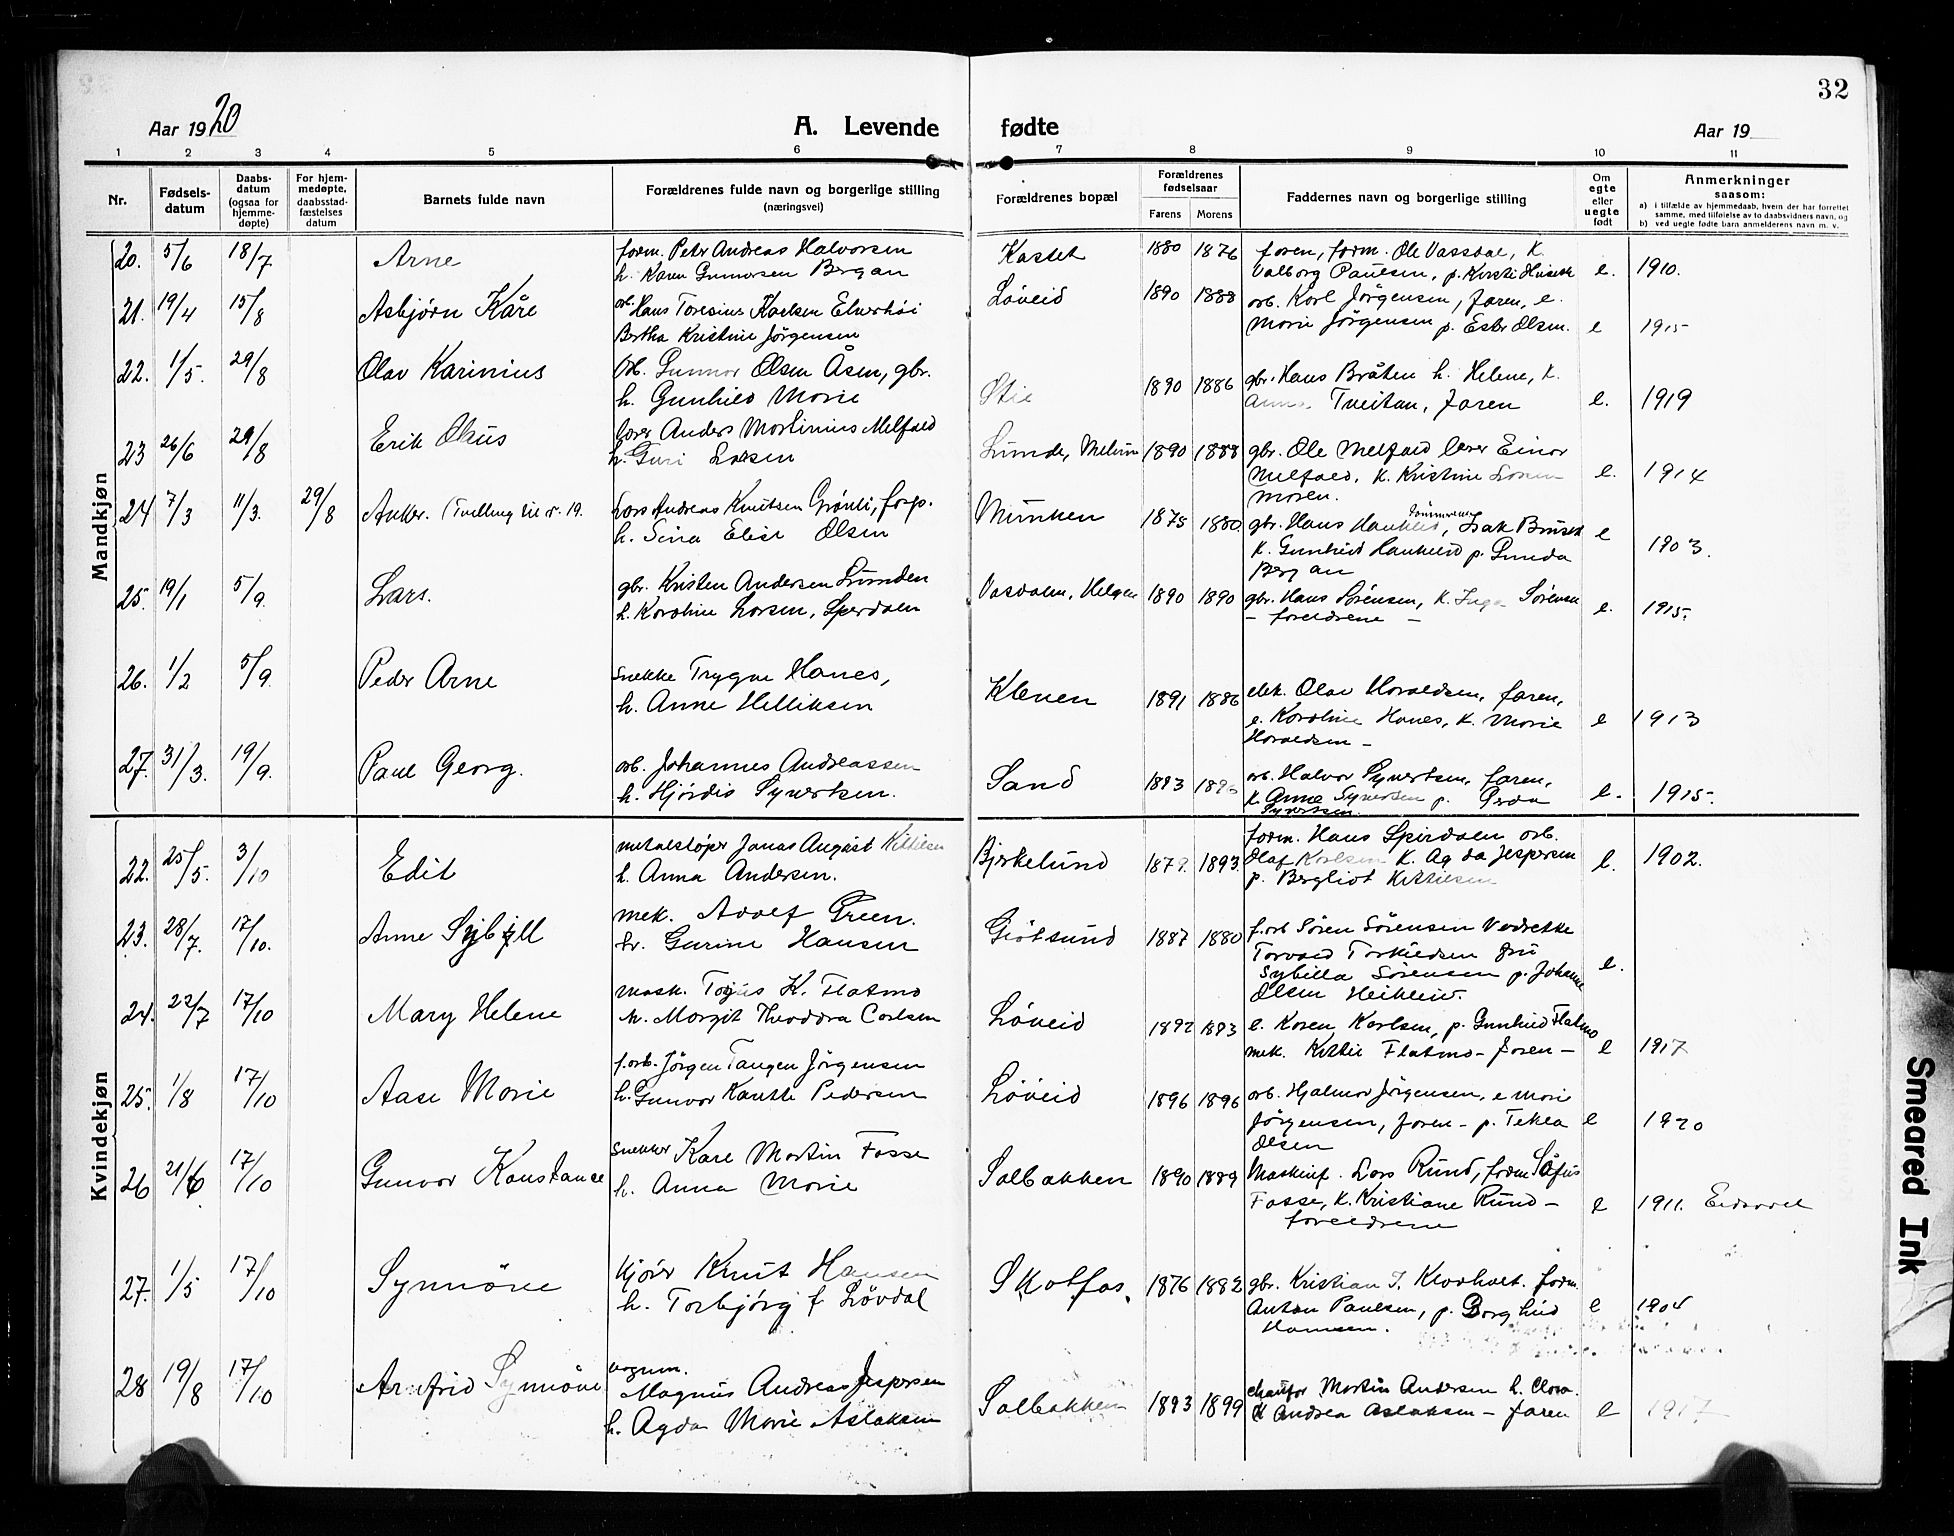 32
Aar 1920
A. Levende fødte
Aar 19
1 2 3 4 5 6 7 8 9 10 11
Nr.
Fødsels-
datum
Daabs-
datum
(ogsaa for
hjemme-
døpte)
For hjem-
medøpte,
daabsstad-
fæstelses
datum
Barnets fulde navn
Forældrenes fulde navn og borgerlige stilling
(næringsvei)
Forældrenes bopæl
Forældrenes
fødselsaar
Farens Morens
Faddernes navn og borgerlige stilling
Om
egte
eller
uegte
født
Anmerkninger
saasom:
a) i tilfælde av hjemmedaab, hvem der har forrettet
samme, med tilføielse av to daabsvidners navn, og
b) ved uegte fødte barn anmelderens navn m. v.
Mandkjøn
20. 5/6 18/7 Arne
form. Petr Andreas Halvorsen
h. Karen Gunnersen Bergan
Kastet 1880 1876
faren, form. Ole Vassdal, K.
Valborg Paulsen, p. Kirsti
e. 1910.
21. 19/4 15/8 Asbjørn Kåre
arb. Hans Toresius Karlsen Elverhøi
Bertha Kristine Jørgensen
Løveid 1890 1888
arb. Karl Jørgensen, faren, e.
Marie Jørgensen p. Ester Olsen.
e 1915
22. 1/5. 29/8 Olav Karinius
arb. Gunnar Olsen Åsen, gbr.
h. Gunhild Marie
Stie 1890 1886
gbr. Hans Bråten h. Helene, K.
Anne Tveitan, faren
e. 1919
23 26/6 29/8 Erik Olaus
lærer Anders Martinius Melfald
h. Guri Larsen
Lunde, Melum 1890 1888
gbr. Ole Melfald lærer Einar
Melfald, K. Kristine Larsen
moren.
e. 1914
24 7/3 11/3. 29/8 Anker. (Tvilling til nr. 19.
Lars Andreas Knutsen Grønli, forp.
h. Sina Elise Olsen
Munken 1875 1880
gbr. Hans Hauklid, Isak
K. Gunhild Haukelid p. Gunda
Bergan
e 1903.
25. 19/1 5/9. Lars.
gbr. Kristen Andersen Lunden
h. Karoline Larsen, Sperdalen
Vasdalen, Helgen 1890 1890
gbr. Hans Sørensen, K. Inga Sørensen
- foreldrene -
e. 1915.
26. 1/2 5/9. Peder Arne
snekke Trygve Hanes,
h. Anne Helliksen
Kleven 1891 1886
elek. Olav Haraldsen, faren,
e. Karoline Hanes, K. Marie
Haraldsen -
e 1913
27. 31/3. 19/9. Paul Georg.
arb. Johannes Andreassen
h. Hjørdis Syvertsen.
Sand 1893
arb. Halvor Syvertsen, faren,
K. Anne Syvertsen p. Gerda
Syvertsen
e. 1915.
Kvindekjøn
22. 25/5. 3/10 Edit
metalstøper Jonas August Kittilsen
h. Anna Andersen.
Bjerkelund 1879. 1893.
form. Hans Sperdalen arb.
Olaf Karlsen K. Agda Jespersen
p. Bergliot Kittilsen
e. 1902.
23. 28/7. 17/10. Anne Sybill
mek. Adolf Green.
h. Gurine Hansen
Gråtsund 1887 1880
f.arb Søren Sørensen
Torvald Torkildsen fru
Sybilla Sørensen p. Johanne
Olsen
e.
24. 22/7 17/10 Mary Helene
mask. Tarjus K. Flatmo
h. Margit Theodora Carlsen
Løveid 1892 1893
e. Karen Karlsen, p. Gunhild Flatmo
mek. Kittil Flatmo - faren -
e 1917
25. 1/8 17/10 Aase Marie
f.arb. Jørgen Tangen Jørgensen
h. Gunvor Kanutte Pedersen
Løveid 1896 1896
arb. Hjalmar Jørgensen, e Marie
Jørgensen, faren - p. Tekla
Olsen
e 1920
26 21/6 17/10 Gunvor Konstance
snekker Karl Martin Fosse
h. Anna Marie
Solbakken 1890 1889
Maskinf. Lars Rund, form Sofus
Fosse, K. Kristiane Rund -
foreldrene
e 1911. Eidsvold
27. 1/5 17/10 Synnöve
Kjører Knut Hansen
h. Torbjørg f Løvdal
Skotfos. 1876 1882
gbr. Kristian J. Klovholt. form.
Anton Paulsen, p. Borghild
Hansen.
e 1904
28 19/8 17/10 Arnfrid Synnöve
vognm.
Magnus Andreas Jespersen
h. Agda Marie Aslaksen
Solbakken 1893 1899
chaufør Martin Andersen h. Clara.
K Andrea Aslaksen - faren
e 1917
Smeared Ink